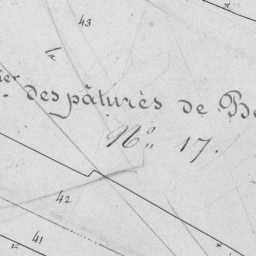 43
ier des pâturès de Be
N° 17.
42
41